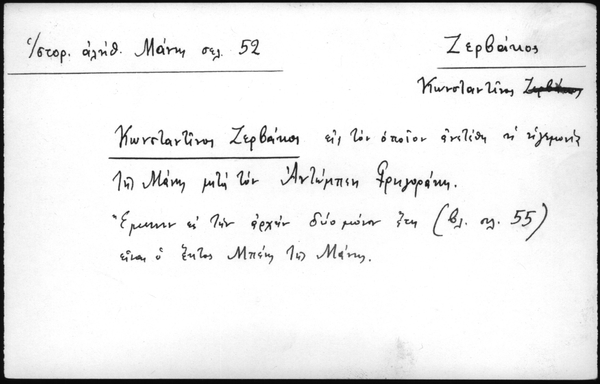 Ἱστορ. ἀλήθ. Μάνης σελ. 52
Ζερβάκος
Κωνσταντῖνος Ζερβάκος
Κωνσταντῖνος Ζερβάκος εἰς τὸν ὁποῖον ἀνετέθη ἡ ἡγεμονία
τῆς Μάνης μετὰ τὸν Ἀντώμπεη Γρηγοράκη.
Ἔμεινεν εἰς τὴν ἀρχὴν δύο μόνον ἔτη (Βλ. σελ. 55)
εἶναι ὁ ἕκτος Μπέης τῆς Μάνης.